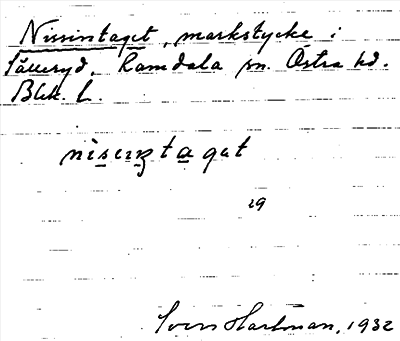 Nissintaget, markstycke i
Tålleryd, Ramdala sn. Östra hd.
Blek. L.
19
Sven Hartman, 1932